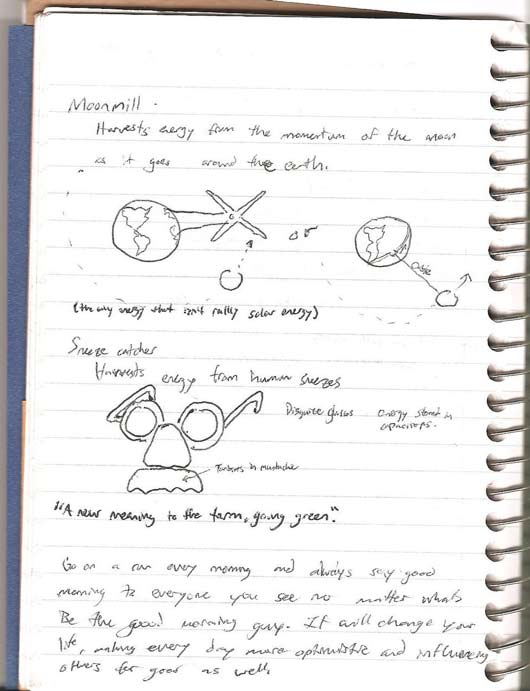 Moonmill.
Harvests energy from the momentum of the moon
as it goes around the earth.
or
Cable
(the only energy that isn't really solar energy)
Sneeze catcher
Harvests energy from human sneezes
Disguise glasses
energy stored in
capacitors.
Turbines in mustache
"A new meaning to the term, going green".
Go on a run every morning and always say good
morning to everyone you see no matter whats
Be the good morning guy. It will change your
life, making every day more optimistic and influencing
others for good as well.